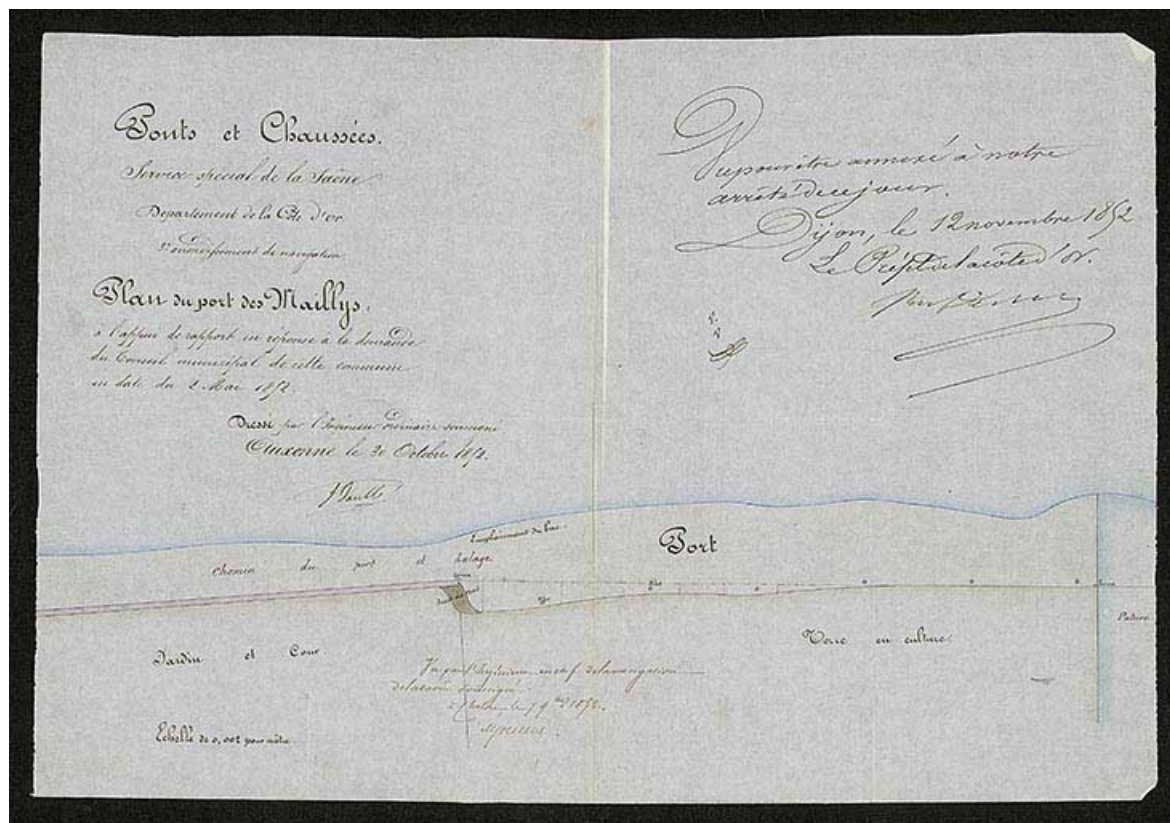 Ponts et Chaussées.
Service spécial de la Saône
Département de la Côte d'or
arrondissement de navigation
Plan du port des Maillys,
à l'appui de rapport en réponse à la demande
du Conseil municipal de cette commune
en date du 2 Mai 1852.
Dressé par l'Ingénieur ordinaire soussigné
Auxonne le 30 Octobre 1852.
Vu pour être annexé à notre
arrêté de ce jour.
Dijon, le 12 novembre 1852
Le Préfet de la côte d'or.
Emplacement du bac
Port
Chemin du port et halage
Jardin et Cour
Terre en culture
Pature
Vu par l'Ingénieur en chef de la navigation
de la Saône soussigné
le 7 9bre 1852.
Echelle de 0,002 pour mètre.